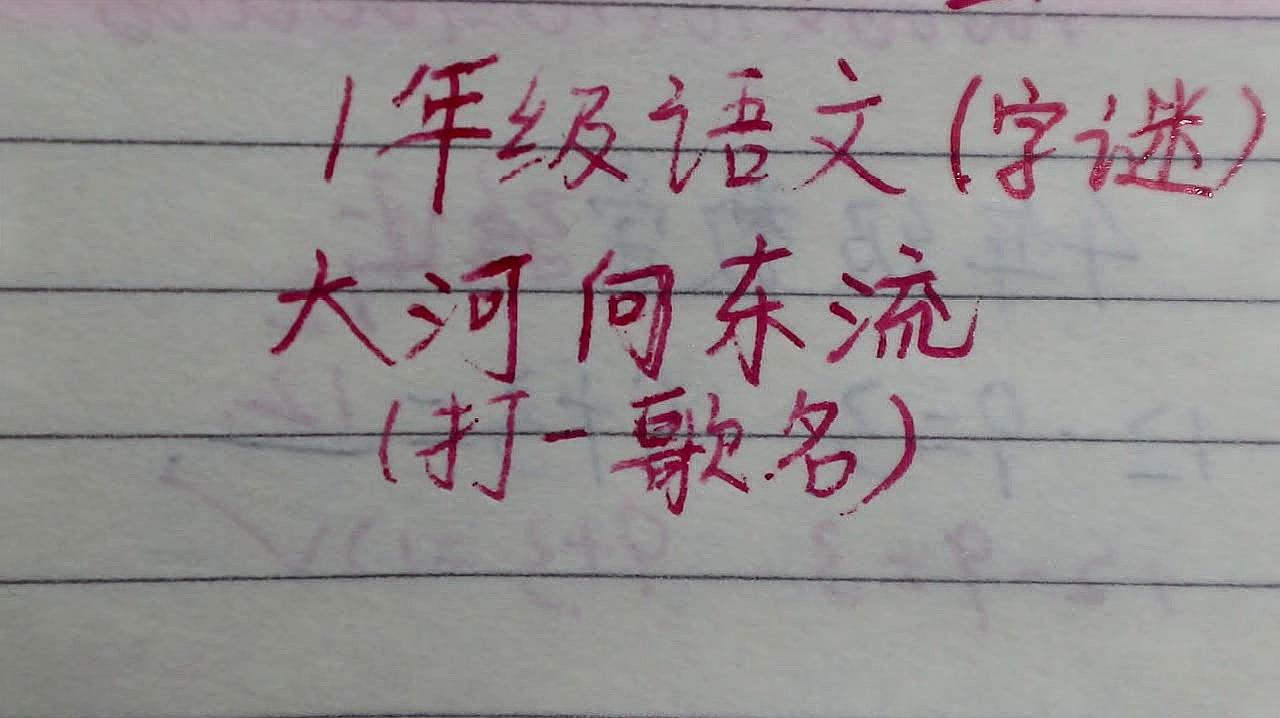 1年级语文(字谜)
大河向东流
(打一歌名)